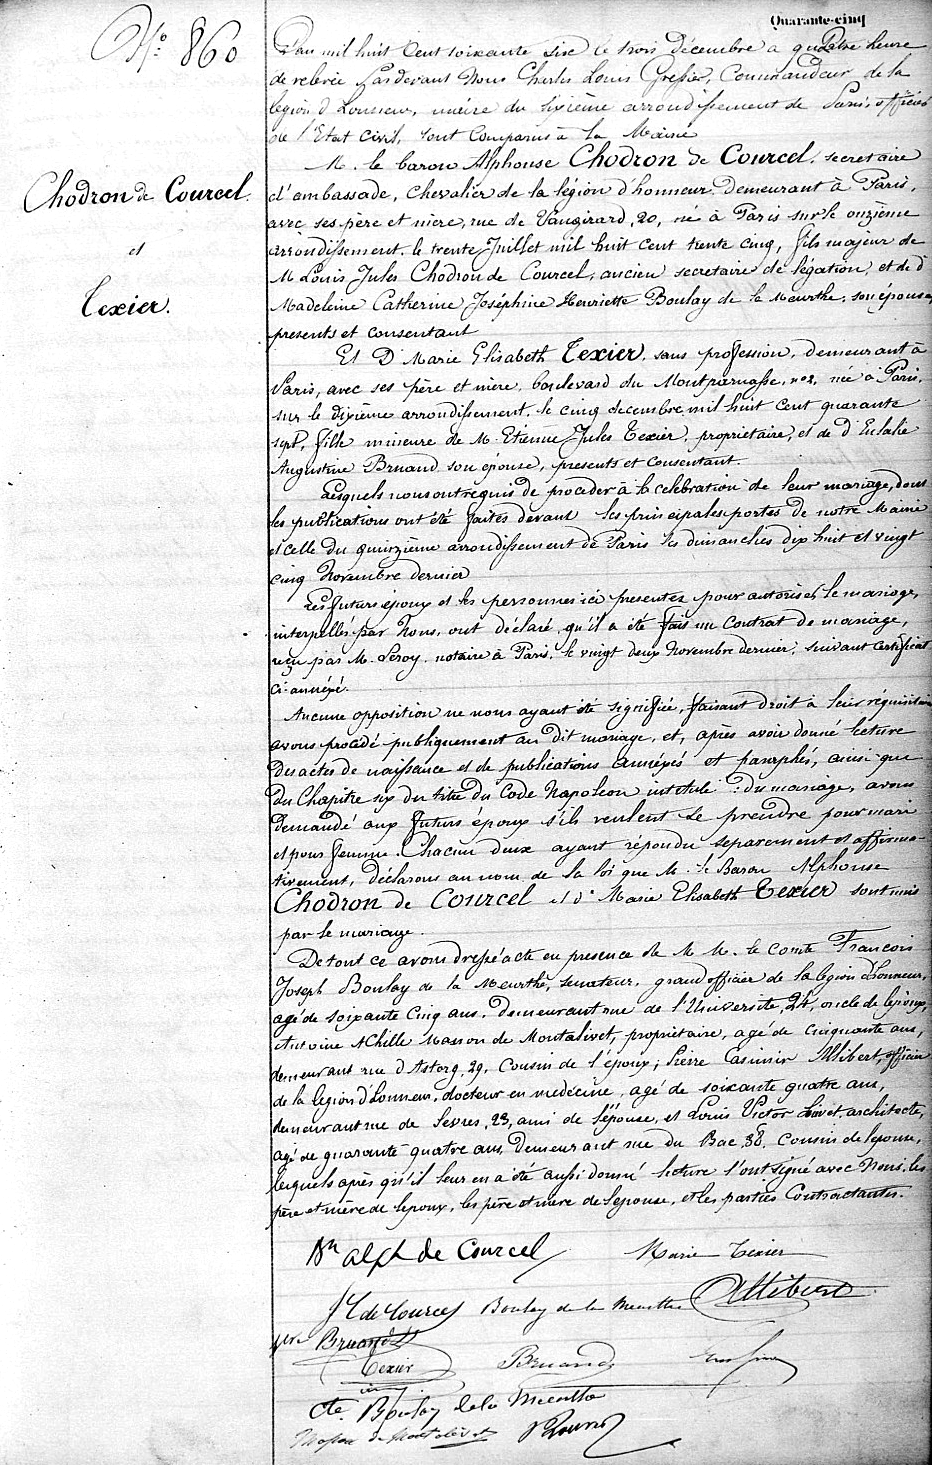 Quarante-cinq
N° 860
Chodron de Courcel
et
Texier.
L'an mil huit cent soixante six le trois décembre à quatre heure
de relevée Pardevant Nous Charles Louis Gressier, Commandeur de la
légion d'honneur, maire du sixième arrondissement de Paris, officier
de l'Etat civil, sont comparus à la Mairie
M. le baron Alphonse Chodron de Courcel, secretaire
d'ambassade, Chevalier de la légion d'honneur demeurant à Paris,
avec ses père et mère, rue de Vaugirard, 20, né à Paris sur le onzième
arrondissement, le trente Juillet mil huit cent trente cinq, fils majeur de
M Louis Jules Chodron de Courcel, ancien secretaire de légation, et de d
Madeleine Catherine Joséphine Henriette Boulay de la Meurthe, son épouse,
presents et consentant
Et D Marie Elisabeth Texier, sans profession, demeurant à
Paris, avec ses père et mère, boulevard du Montparnasse, née à Paris,
sur le dixième arrondissement, le cinq decembre mil huit cent quarante
sept, fille mineure de M. Etienne Jules Texier, proprietaire, et de d Eulalie
Augustine Bruand son épouse, presents et consentant.
Lesquels nous ont requis de proceder à la celebration de leur mariage, dont
les publications ont été faites devant les principales portes de notre Mairie
et celle du quinzième arrondissement de Paris les dimanches dix huit et vingt
cinq Novembre dernier
Les futurs époux et les personnes ici presentes pour autoriser le mariage,
interpellés par Nous, ont déclaré, qu'il a été fait un Contrat de mariage,
reçu par M. Leroy, notaire à Paris, le vingt deux Novembre dernier, suivant certificat
ci-annéxé.
Aucune opposition ne nous ayant été signifiée, faisant droit à leur réquisition
avons procédé publiquement au dit mariage, et, après avoir donné lecture
des actes de naissance et de publications annéxés et paraphés, ainsi que
du Chapitre six du titre du Code Napoleon intitulé : du mariage, avons
demandé aux futurs epoux s'ils veulent se prendre pour mari
et pour femme. Chacun deux ayant répondu separement et affirma-
tivement, déclarons au nom de la loi que M. le Baron Alphonse
Chodron de Courcel et d. Marie Elisabeth Texier sont unis
par le mariage.
De tout ce avons dressé acte en presence de M M. le Comte François
Joseph Boulay de la Meurthe, senateur, grand officier de la legion d'honneur,
agé de soixante cinq ans, demeurant rue de l'Université, 24, oncle de l'époux,
Antoine Achille Masson de Montalivet, propriétaire, agé de cinquante ans,
demeurant rue d'Astorg 29, cousin de l'époux, Pierre Casimir Allibert, officier
de la legion d'honneur, docteur en médecine, agé de soixante quatre ans,
demeurant rue de Sevres, 23, ami de l'épouse, et Louis Victor Louvet, architecte,
agé de quarante quatre ans, demeurant rue du Bac 38, cousin de lepouse,
lesquels après qu'il leur en a été aussi donné lecture l'ont signé avec Nous, les
père et mère de lepoux, les père et mère de lepouse, et les parties Contractantes.
Bn Alph de Courcel Marie Texier
J L de Courcel Boulay de la Meurthe Allibert
Bruand
Texier Bruand
Cte. Boulay de la Meurthe
Masson de Montalivet V Louvet